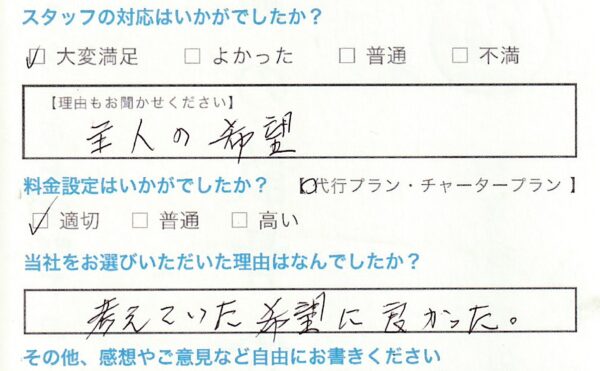 スタッフの対応はいかがでしたか？
☑ 大変満足 □ よかった □ 普通 □ 不満
【理由もお聞かせください】
主人の希望
料金設定はいかがでしたか？ 【代行プラン・チャータープラン】
☑ 適切 □ 普通 □ 高い
当社をお選びいただいた理由はなんでしたか？
考えていた希望に良かった。
その他、感想やご意見など自由にお書きください